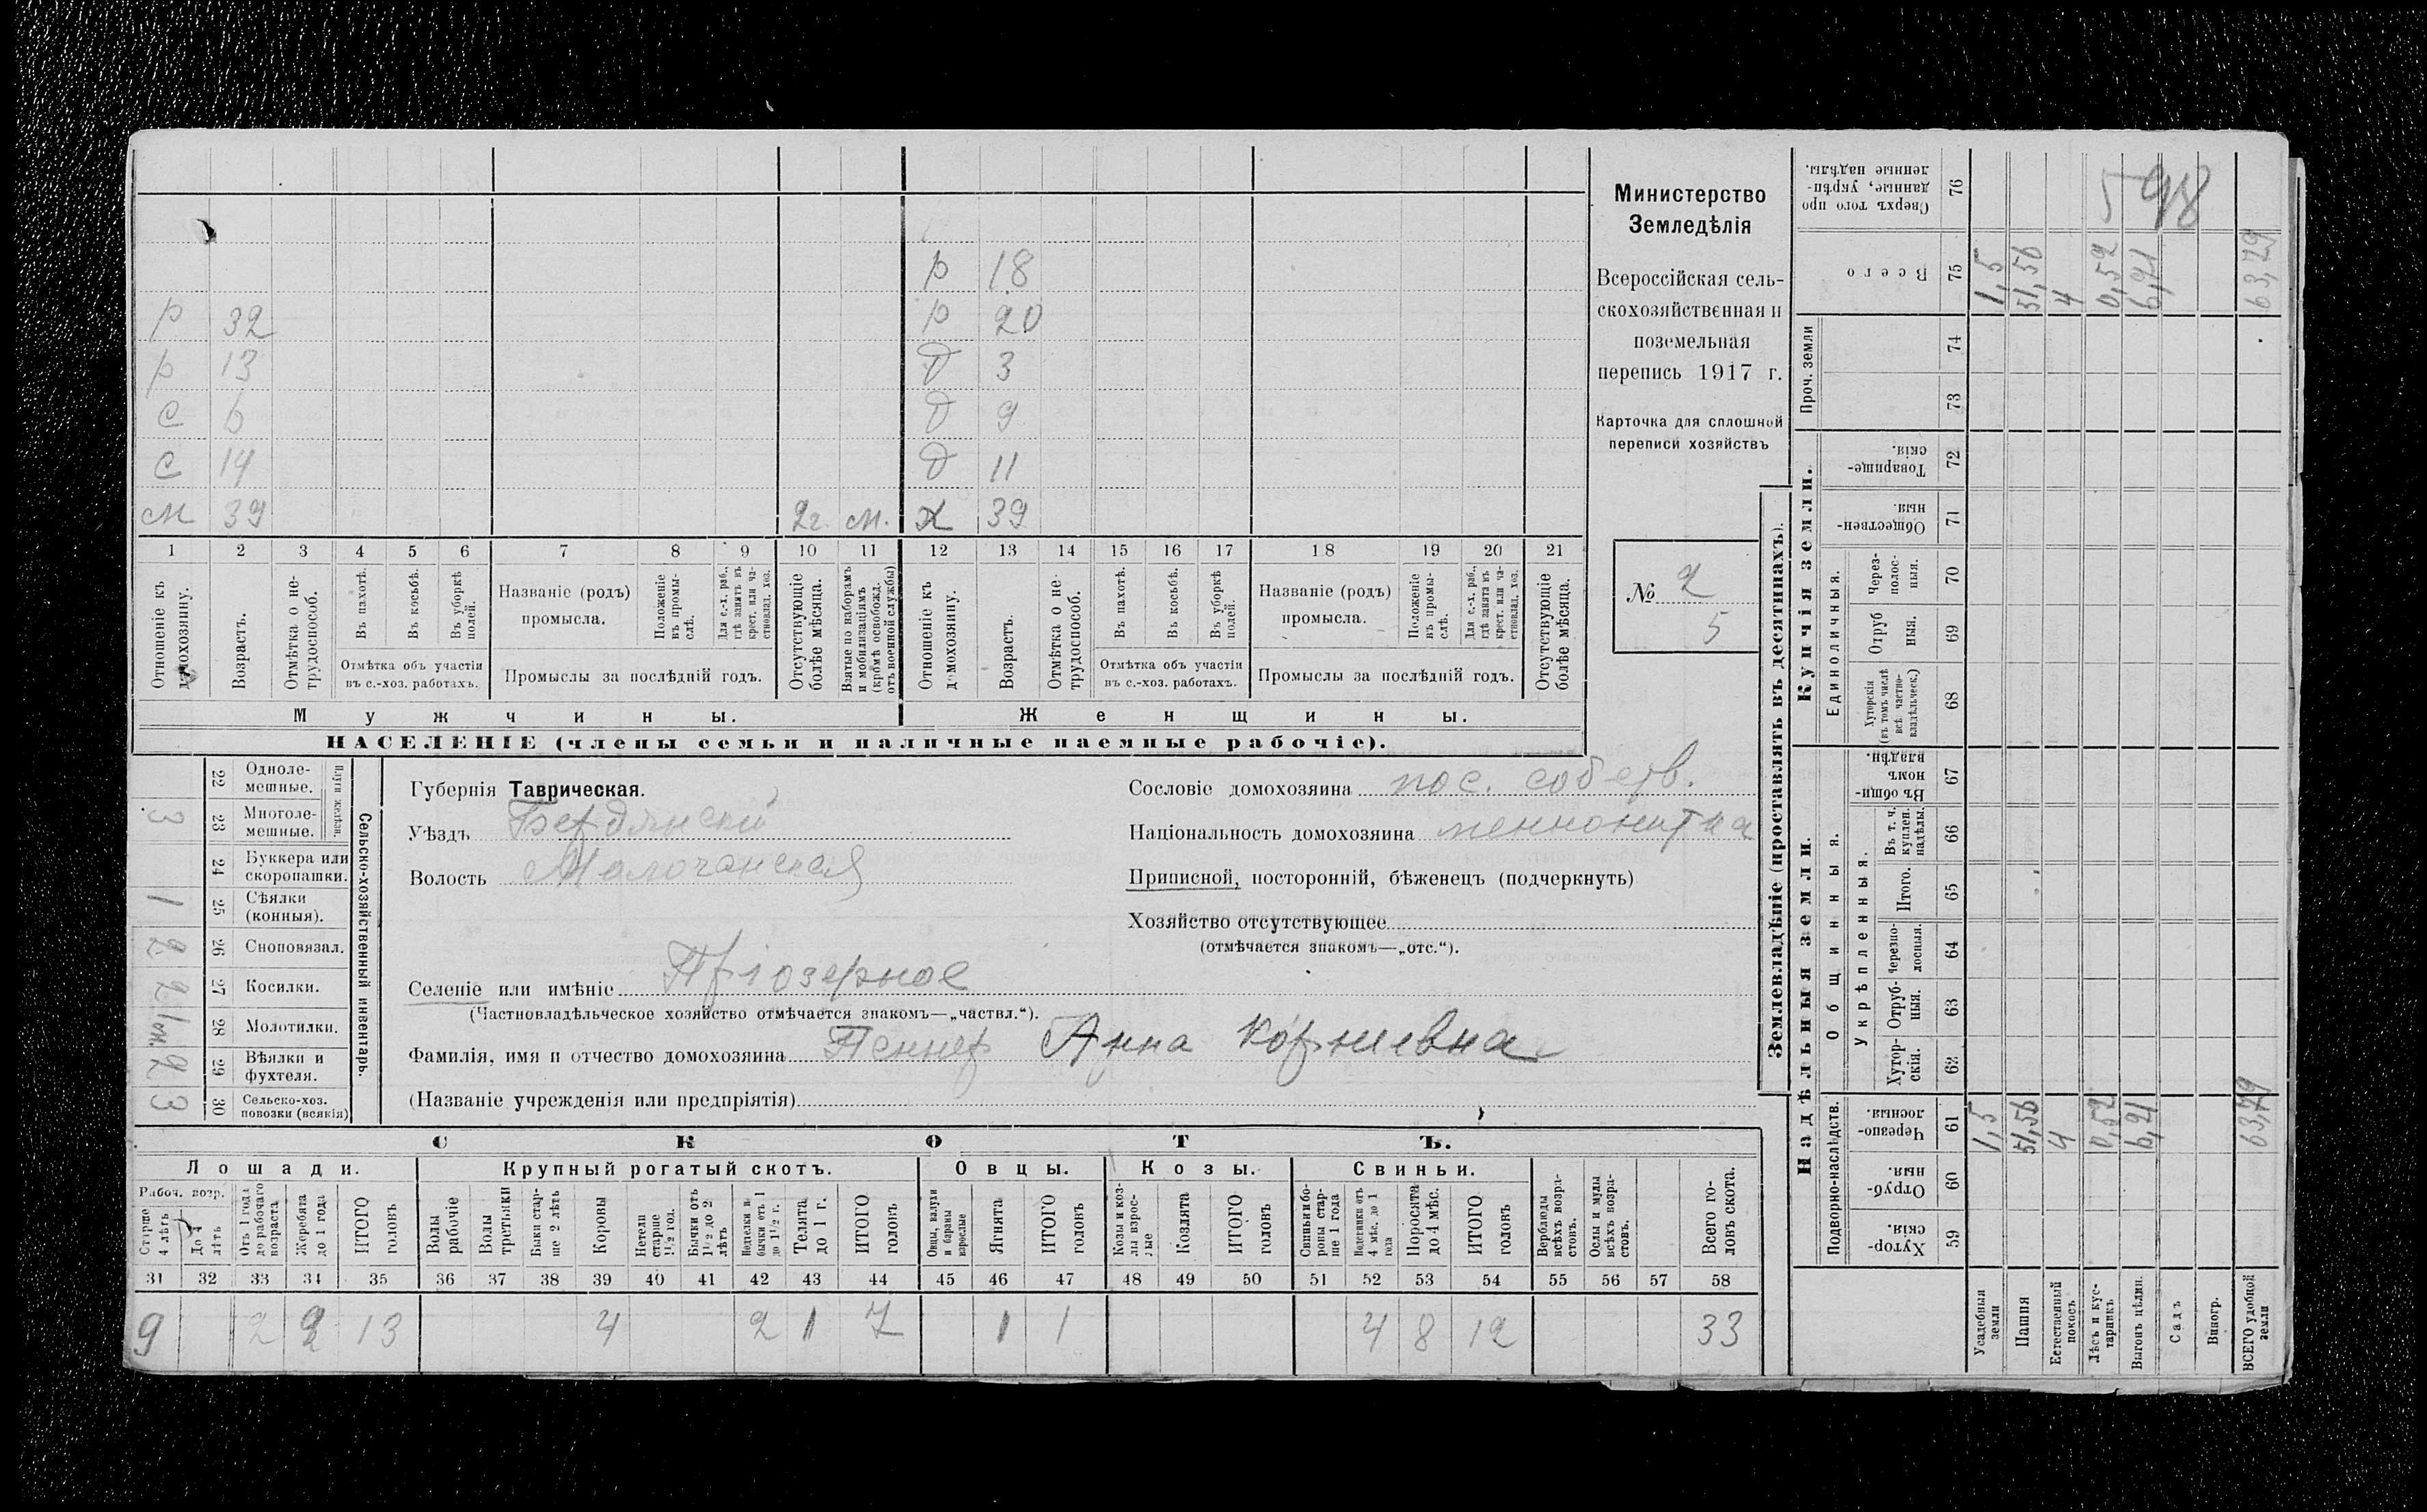 Министерство
Земледѣлія
Всероссійская сель-
скохозяйственная и
поземельная
перепись 1917 г.
Карточка для сплошной
переписи хозяйствъ
№ 2
5
р 18
р 32 р 20
р 13 д 3
с 6 д 9
с 14 д 11
м 39 2г. м. х 39
1 2 3 4 5 6 7 8 9 10 11 12 13 14 15 16 17 18 19 20 21
Отношеніе къ домохозяину.
Возрастъ.
Отмѣтка о не-трудоспособ.
Въ пахотѣ.
Въ косьбѣ.
Въ уборкѣ полей.
Отмѣтка объ участіи
въ с.-хоз. работахъ.
Названіе (родъ)
промысла.
Положеніе въ промы-слѣ.
Для с.-х. раб., гдѣ занятъ въ крест. или ча-стновлад. хоз.
Промыслы за послѣдній годъ.
Отсутствующіе болѣе мѣсяца.
Взятые по наборамъ и мобилизаціямъ (кромѣ освобожд. отъ военной службы)
Отношеніе къ домохозяину.
Возрастъ.
Отмѣтка о не-трудоспособ.
Въ пахотѣ.
Въ косьбѣ.
Въ уборкѣ полей.
Отмѣтка объ участіи
въ с.-хоз. работахъ.
Названіе (родъ)
промысла.
Положеніе въ промы-слѣ.
Для с.-х. раб., гдѣ занята въ крест. или ча-стновлад. хоз.
Промыслы за послѣдній годъ.
Отсутствующіе болѣе мѣсяца.
Мужчины. Женщины.
НАСЕЛЕНІЕ (члены семьи и наличные наемные рабочіе).
Сельско-хозяйственный инвентарь.
Плуги желѣзн.
22 Одноле-мешные.
3 23 Многоле-мешные.
24 Буккера или скоропашки.
1 25 Сѣялки (конныя).
2 26 Сноповязал.
2 27 Косилки.
28 Молотилки.
2 29 Вѣялки и фухтеля.
3 30 Сельско-хоз. повозки (всякія)
Губернія Таврическая.
Уѣздъ Бердянскій
Волость Молочанская
Сословіе домохозяина пос. собств.
Національность домохозяина меннонитка
Приписной, посторонній, бѣженецъ (подчеркнуть)
Хозяйство отсутствующее
(отмѣчается знакомъ—„отс.“).
Селеніе или имѣніе Пріозерное
(Частновладѣльческое хозяйство отмѣчается знакомъ—„частвл.“).
Фамилія, имя и отчество домохозяина Пеннер Анна Корнеевна
(Названіе учрежденія или предпріятія)
СКОТЪ.
Лошади. Крупный рогатый скотъ. Овцы. Козы. Свиньи.
Рабоч. возр.
Старше 4 лѣтъ
До 4 лѣтъ
Отъ 1 года до рабочаго возраста
Жеребята до 1 года
ИТОГО головъ
Волы рабочіе
Волы третьяки
Быки стар-ше 2 лѣтъ
Коровы
Нетели старше 1½ год.
Бычки отъ 1½ до 2 лѣтъ
Подтелки и бычки отъ 1 до 1½ г.
Телята до 1 г.
ИТОГО головъ
Овцы, валухи и бараны взрослые
Ягнята
ИТОГО головъ
Козы и коз-лы взрос-лые
Козлята
ИТОГО головъ
Свиньи и бо-ровы стар-ше 1 года
Подсвинки отъ 4 мѣс. до 1 года
Поросята до 4 мѣс.
ИТОГО головъ
Верблюды всѣхъ возра-стовъ.
Ослы и мулы всѣхъ возра-стовъ.
Всего го-ловъ скота.
31 32 33 34 35 36 37 38 39 40 41 42 43 44 45 46 47 48 49 50 51 52 53 54 55 56 57 58
9 2 2 13 4 2 1 7 1 1 4 8 12 33
Землевладѣніе (проставлять въ десятинахъ).
598
Сверхъ того про-данные, укрѣп-ленные надѣлы. 76
Всего 75 1,5 51,56 4 0,52 6,21 63,79
Проч. земли 74
73
Купчія земли.
Товарище-скія 72
Обществен-ныя. 71
Единоличныя.
Через-полос-ныя. 70
Отруб-ныя. 69
Хуторскія (въ томъ числѣ всѣ частно-владѣльческ.) 68
Надѣльныя земли.
Общинныя.
Въ общин-номъ владѣн. 67
Укрѣпленныя.
Въ т. ч. куплен. надѣлы 66
Итого. 65
Черезпо-лосныя. 64
Отруб-ныя. 63
Хутор-скія. 62
Подворно-наслѣдств.
Черезпо-лосныя. 61 1,5 51,56 4 0,52 6,21 63,79
Отруб-ныя. 60
Хутор-скія. 59
Усадебныя земли
Пашня
Естественный покосъ
Лѣсъ и кус-тарникъ
Выгонъ цѣлин.
Садъ
Виногр.
ВСЕГО удобной земли